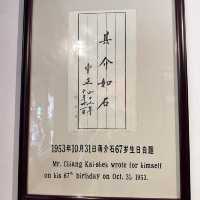 其介如石
中正
1953年10月31日蒋介石67岁生日自题
Mr. Chiang Kai-shek wrote for himself
on his 67th birthday on Oct. 31. 1953.